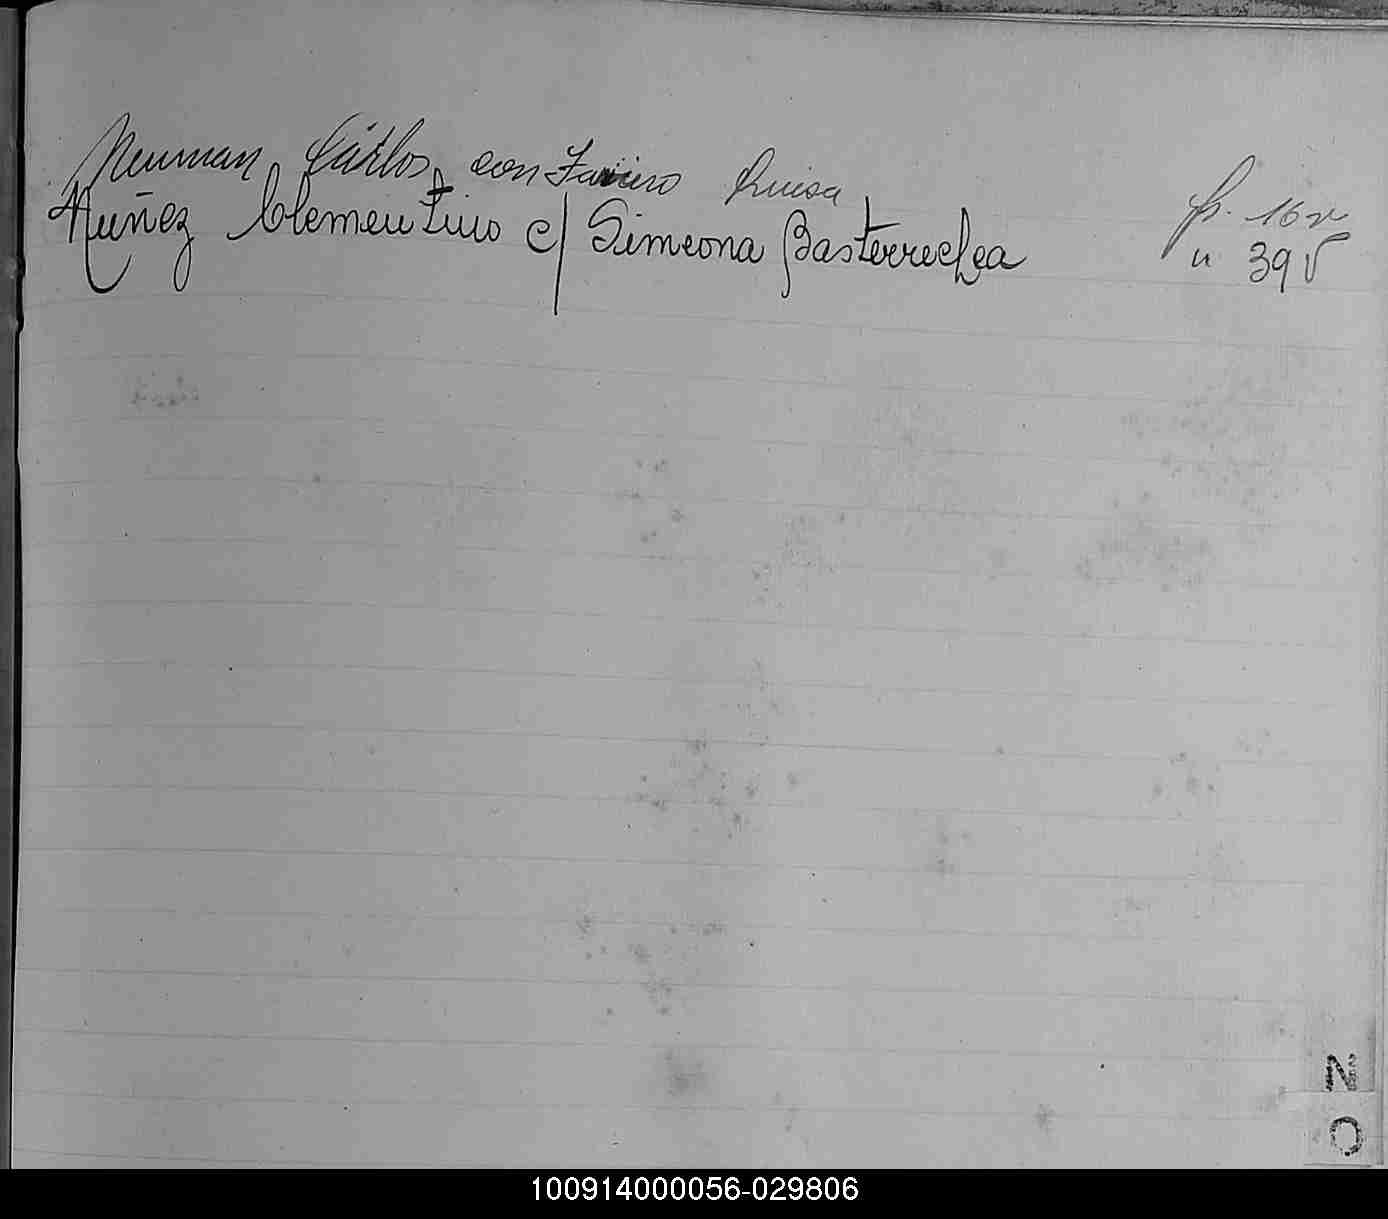 Neuman, Cárlos, con Luisa fs. 16 v
Nuñez Clementino c/ Simeona Basterrechea " 39 v
N
O
100914000056-029806